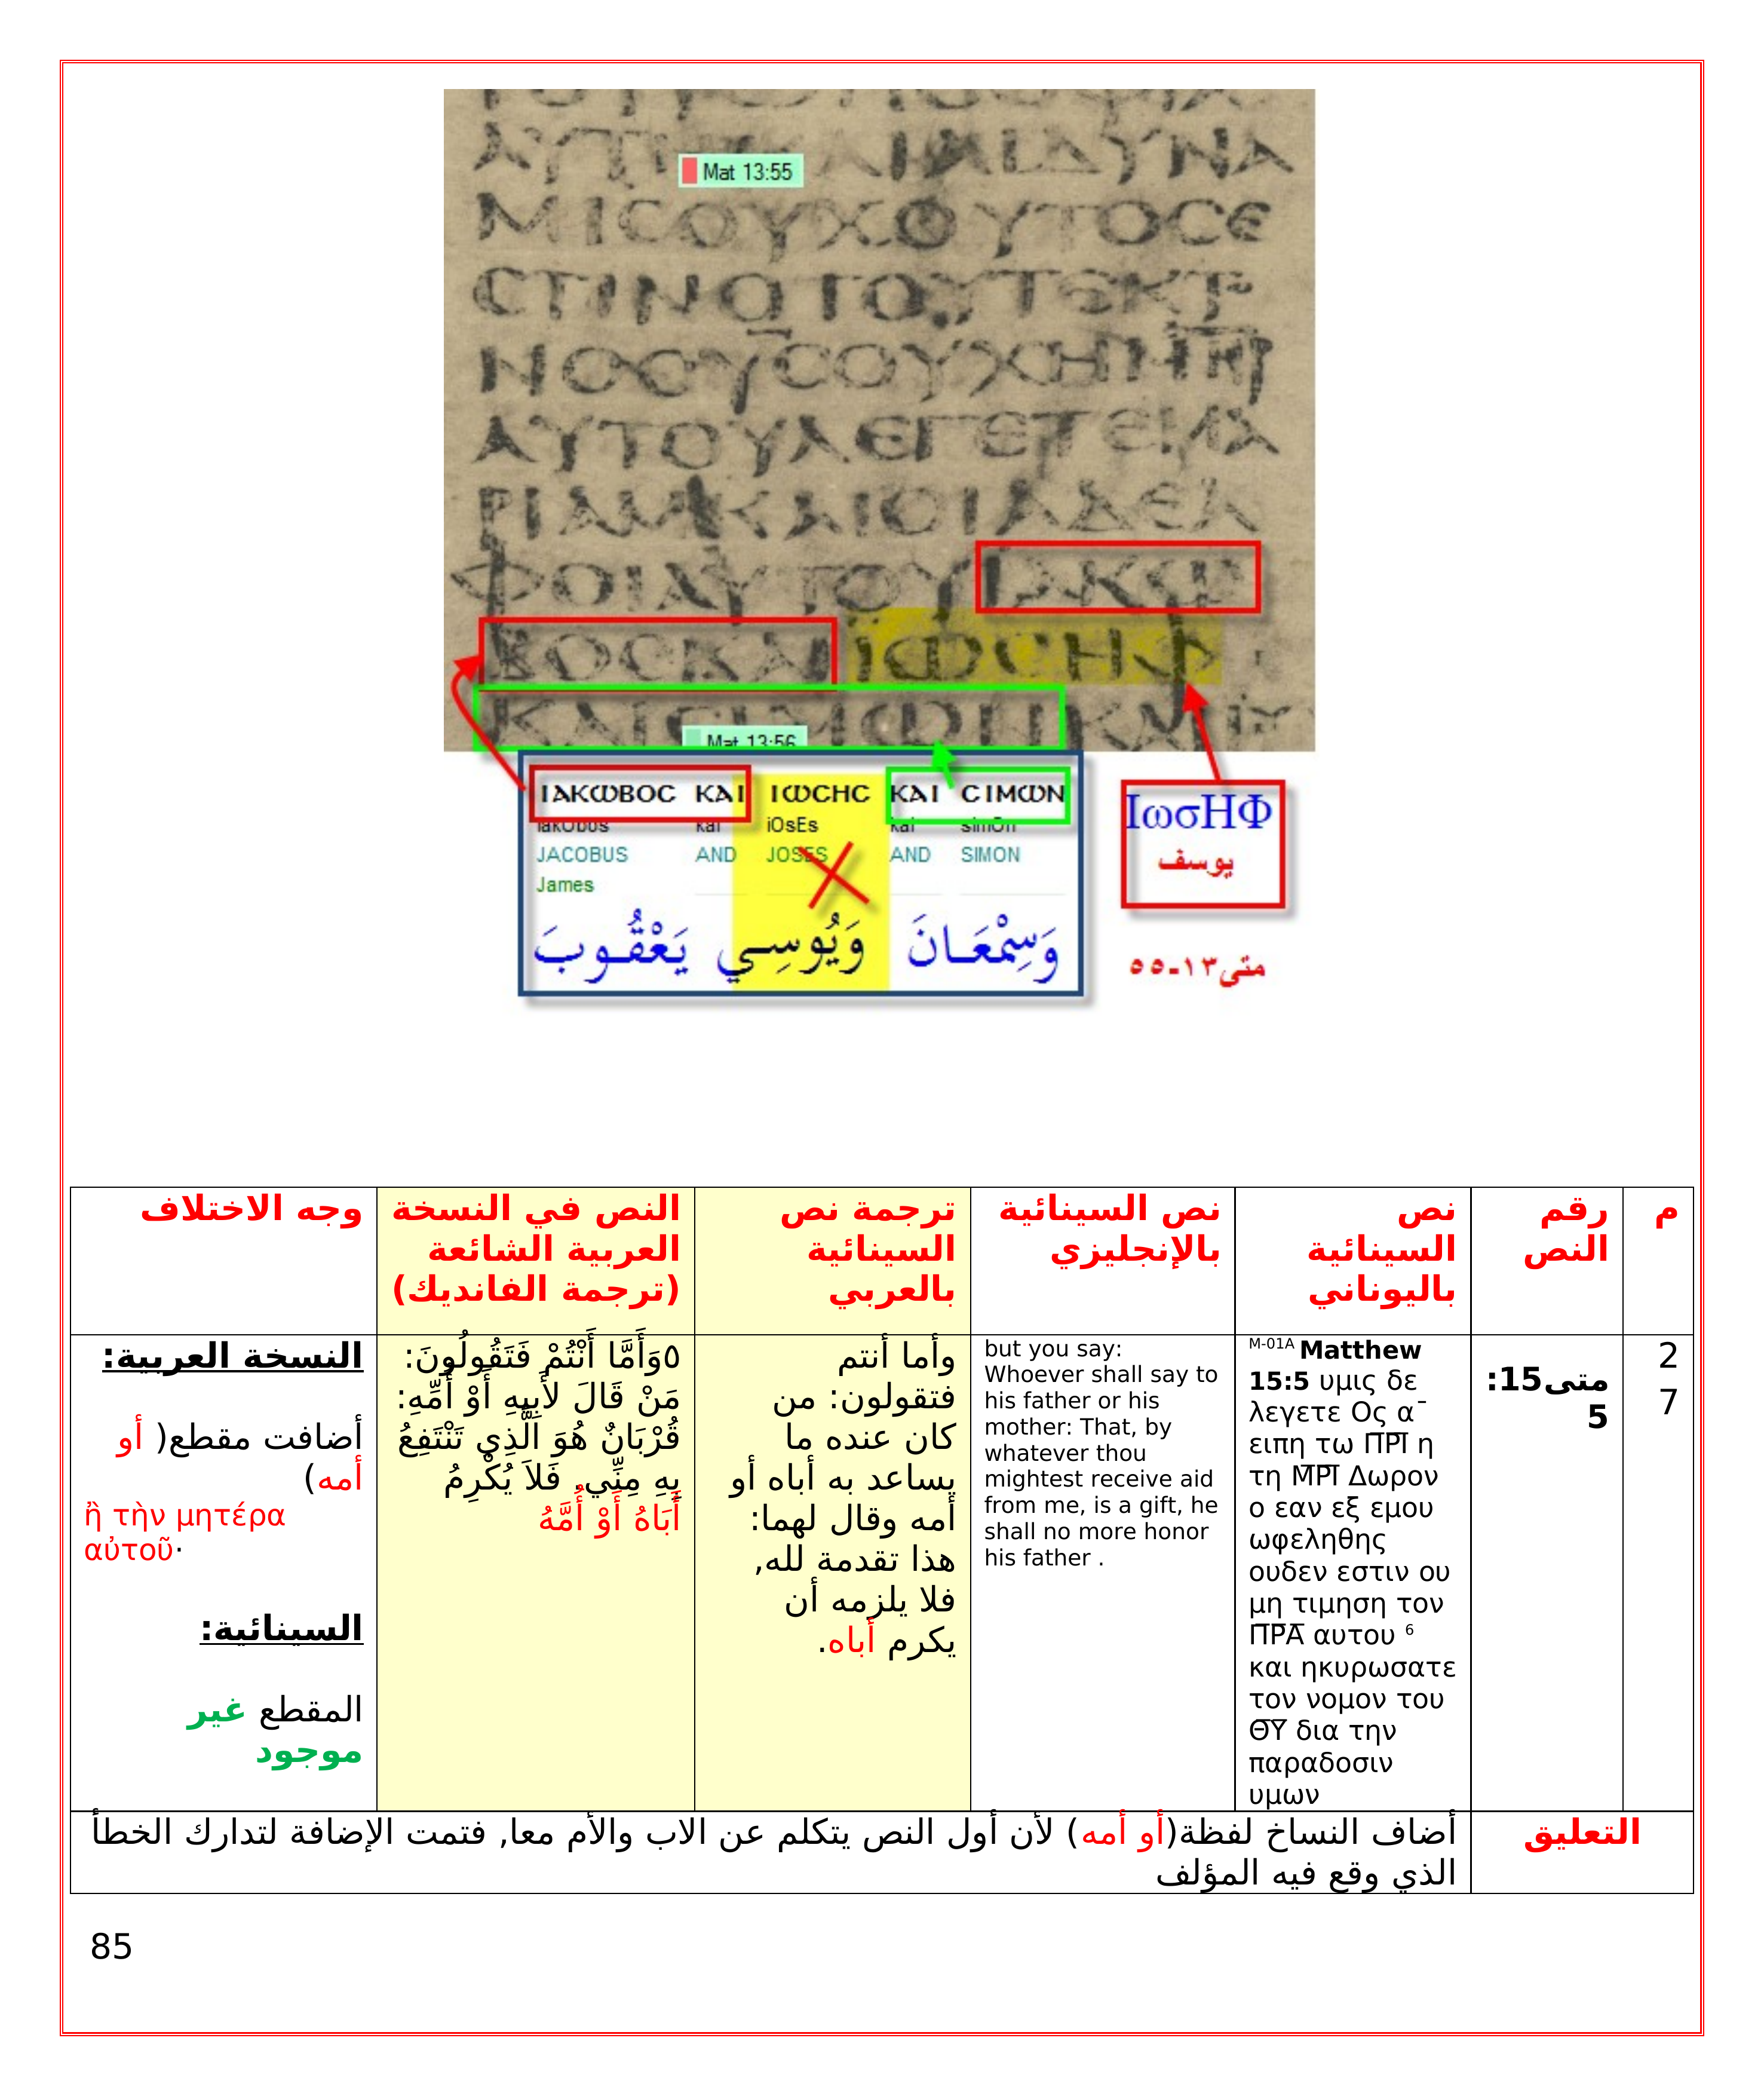 Mat 13:55
ΑΥΤ ΔΥΝΑ
ΜΙCΟΥΧΟΥΤΟCΕ
CΤΙΝΟΤΟΥΤΕΚΤ
ΝΟCΥCΟΥΧΗΜΗΡ
ΑΥΤΟΥΛΕΓΕΤΕΜΑ
ΡΙΑΜΚΑΙΟΙΑΔΕΛ
ΦΟΙΑΥΤΟΥΙΑΚΩ
ΒΟCΚΑΙΙΩCΗΦ
ΚΑΙCΙΜΩΝΚΑΙ
Mat 13:56
ΙΑΚΩΒΟC ΚΑΙ ΙΩCΗC ΚΑΙ CΙΜΩΝ
iakObos kai iOsEs kai simOn
JACOBUS AND JOSES AND SIMON
James
وَسِمْعَانَ وَيُوسِي يَعْقُوبَ
ΙωσΗΦ
يوسف
متى١٣-٥٥
م
رقم
النص
نص
السينائية
باليوناني
نص السينائية
بالإنجليزي
ترجمة نص
السينائية
بالعربي
النص في النسخة
العربية الشائعة
(ترجمة الفانديك)
وجه الاختلاف
2
7
متى15:
5
M-01A Matthew
15:5 υμις δε
λεγετε Ος α¯
ειπη τω Π̅Ρ̅Ι̅ η
τη Μ̅Ρ̅Ι̅ Δωρον
ο εαν εξ εμου
ωφεληθης
ουδεν εστιν ου
μη τιμηση τον
Π̅Ρ̅Α̅ αυτου 6
και ηκυρωσατε
τον νομον του
Θ̅Υ̅ δια την
παραδοσιν
υμων
but you say:
Whoever shall say to
his father or his
mother: That, by
whatever thou
mightest receive aid
from me, is a gift, he
shall no more honor
his father .
وأما أنتم
فتقولون: من
كان عنده ما
يساعد به أباه أو
أمه وقال لهما:
هذا تقدمة لله,
فلا يلزمه أن
يكرم أباه.
٥وَأَمَّا أَنْتُمْ فَتَقُولُونَ:
مَنْ قَالَ لأَبِيهِ أَوْ أُمِّهِ:
قُرْبَانٌ هُوَ الَّذِي تَنْتَفِعُ
بِهِ مِنِّي. فَلاَ يُكْرِمُ
أَبَاهُ أَوْ أُمَّهُ
النسخة العربية:
أضافت مقطع( أو
أمه)
ἢ τὴν μητέρα
αὐτοῦ·
السينائية:
المقطع غير
موجود
التعليق
أضاف النساخ لفظة(أو أمه) لأن أول النص يتكلم عن الاب والأم معا, فتمت الإضافة لتدارك الخطأ
الذي وقع فيه المؤلف
85